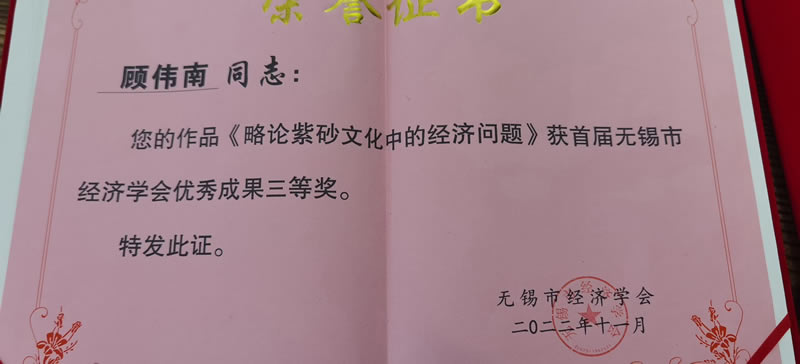 荣誉证书
顾伟南 同志：
您的作品《略论紫砂文化中的经济问题》获首届无锡市
经济学会优秀成果三等奖。
特发此证。
无锡市经济学会
二〇二二年十一月